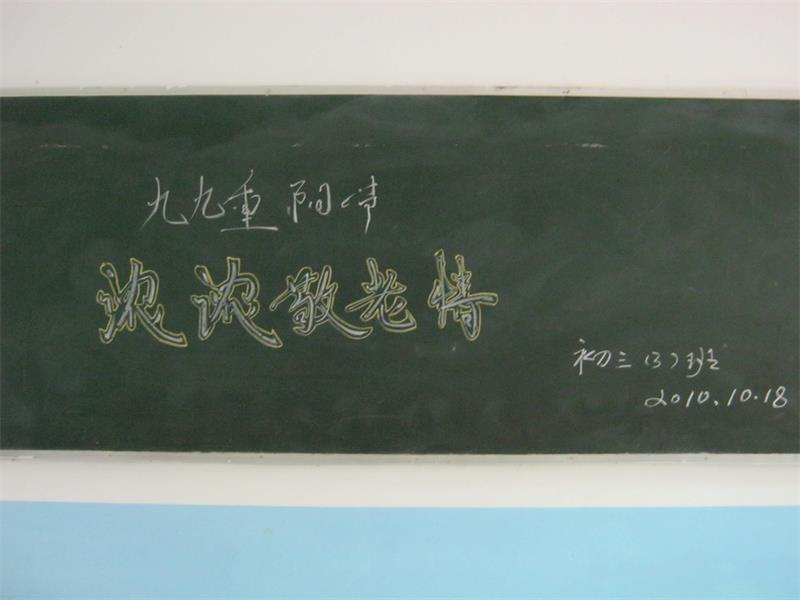 九九重阳节
浓浓敬老情
初三(3)班
2010.10.18